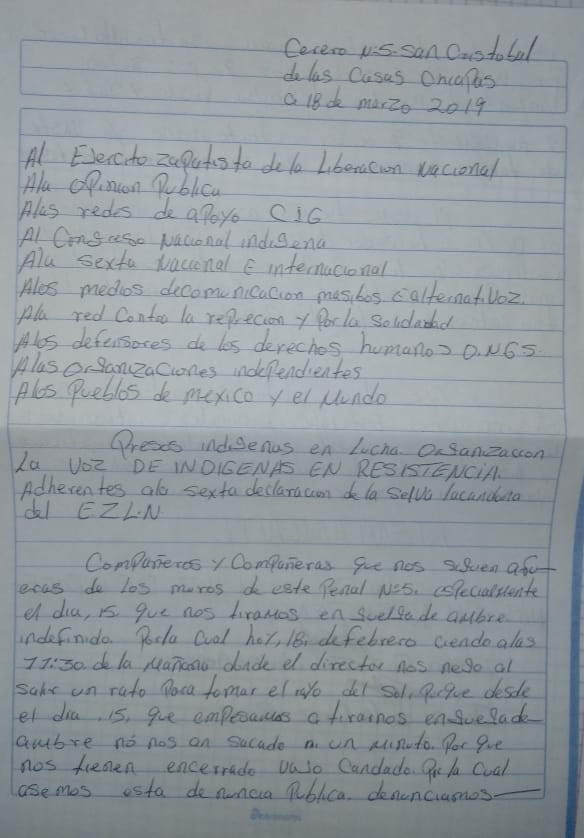 Cerero N:5. San Cristobal
de las Casas Chiapas
a 18 de marzo 2019
Al Ejercito zapatista de la Liberacion Nacional
Ala opinion Publica
Alas redes de apoyo CIG
Al Congreso Nacional indigena
Ala sexta Nacional E internacional
Alos medios decomunicacion masibos i alternativoz.
Ala red Contra la represion y Porla Solidaridad
Alos defensores de los derechos humanos O.NGS.
Alas Organizaciones independientes
Alos Pueblos de mexico y el Mundo
Presos indigenas en Lucha. Organizacion
La VOZ DE INDIGENAS EN RESISTENCIA.
Adherentes ala sexta declaracion de la Selva lacandona
del EZLN
Compañeros y Compañeras que nos siguen afu-
eras de los muros de este Penal N:5. especialmente
el dia, 15. que nos tiramos en guelga de ambre.
indefinido. Porla cual hoy, 18. de febrero ciendo alas
11:30. de la Mañana donde el director nos nego al
salir un rato Para tomar el rayo del Sol, Porque desde
el dia. 15, que empesamos a tirarnos enguelgade
ambre no nos an sacado ni un minuto. Por que
nos tienen encerrado vajo Candado. Por la Cual
asemos esta denuncia Publica. denunciamos